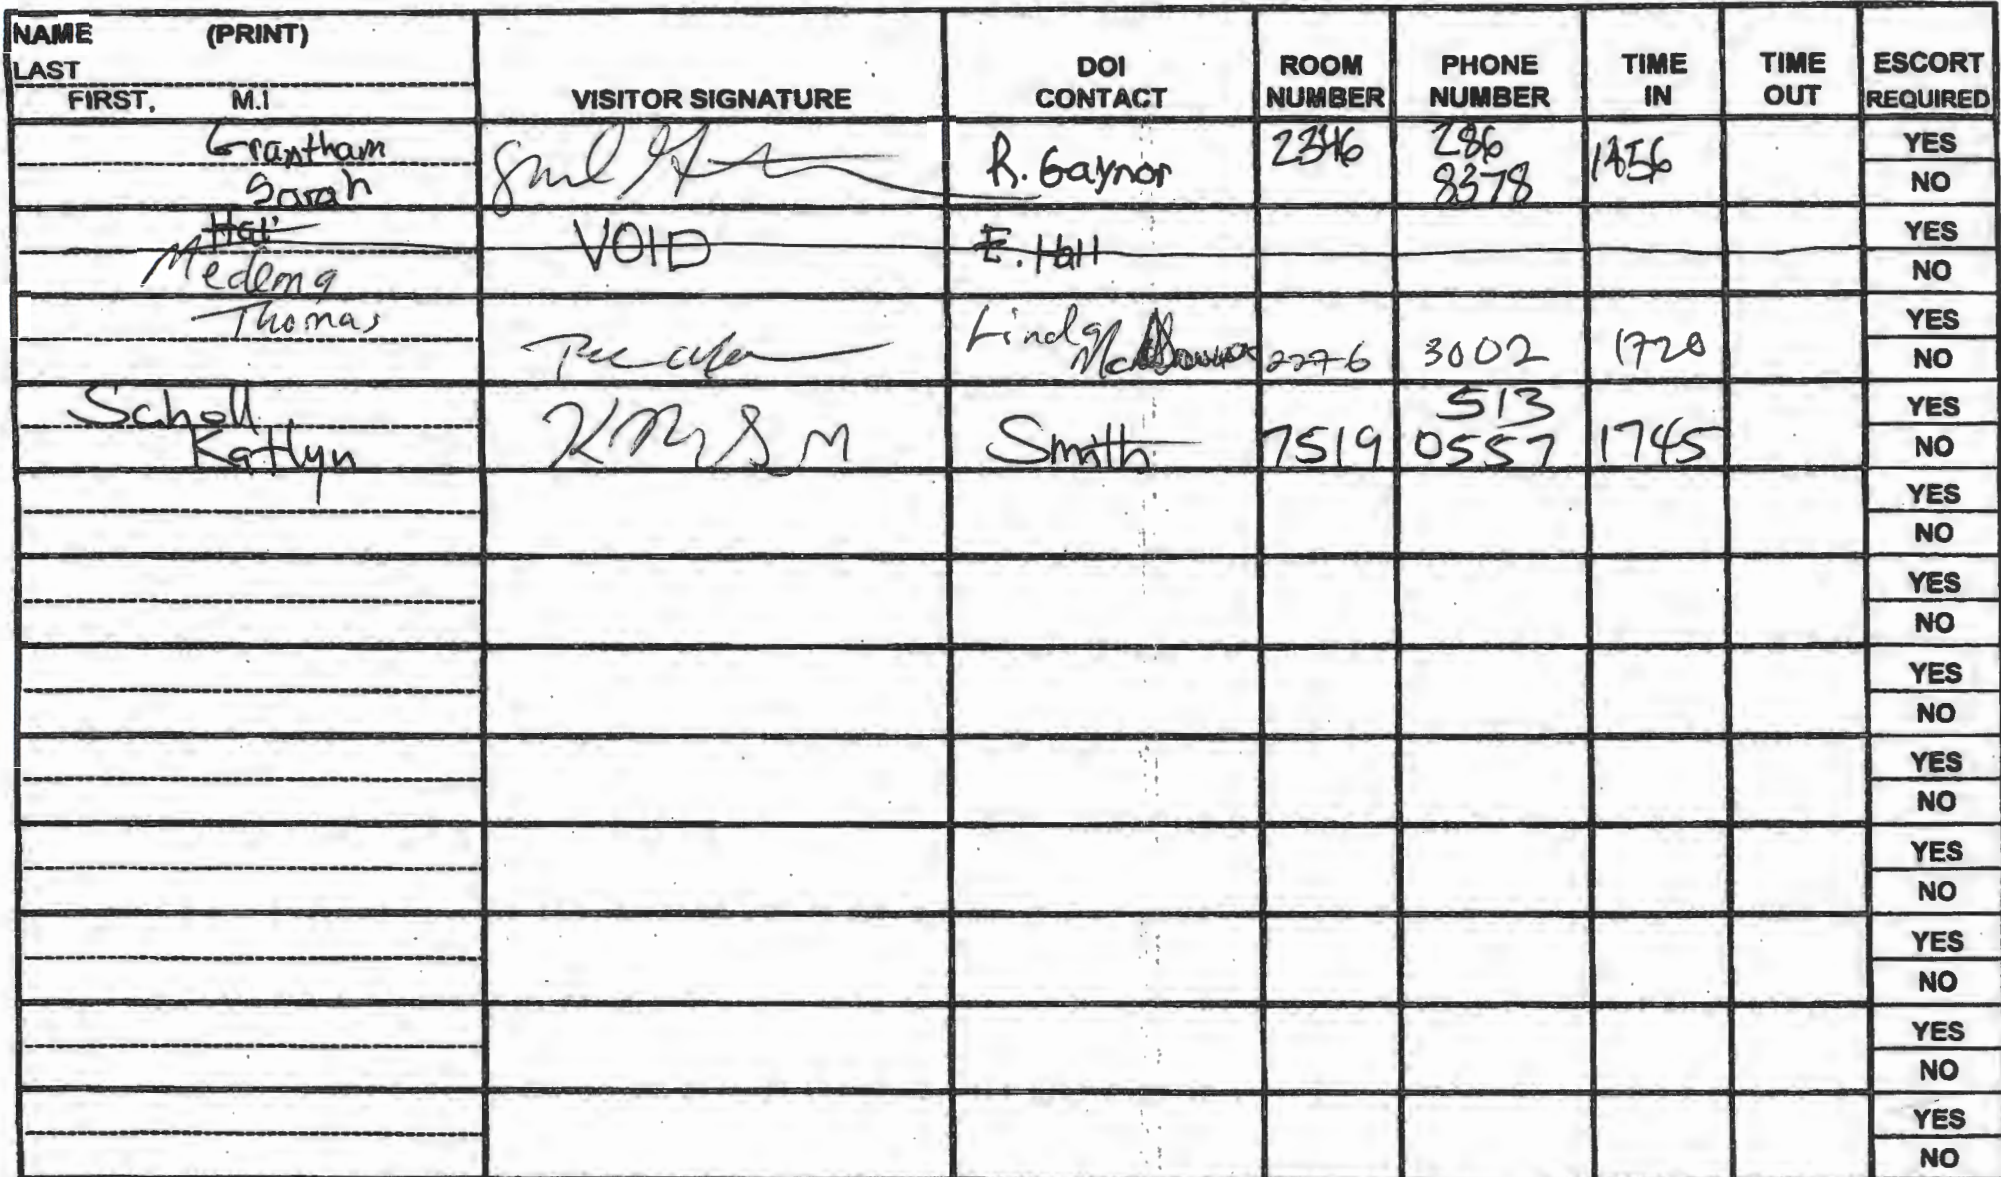 NAME (PRINT)
LAST
FIRST, M.I
VISITOR SIGNATURE
DOI
CONTACT
ROOM
NUMBER
PHONE
NUMBER
TIME
IN
TIME
OUT
ESCORT
REQUIRED
Grantham
Sarah
R. Gaynor
2346
286
8378
1656
YES
NO
VOID
E. Hall
YES
NO
Medema
Thomas
Linda
2276
3002
1720
YES
NO
Scholl
Katlyn
Smith
7519
513
0557
1745
YES
NO
YES
NO
YES
NO
YES
NO
YES
NO
YES
NO
YES
NO
YES
NO
YES
NO